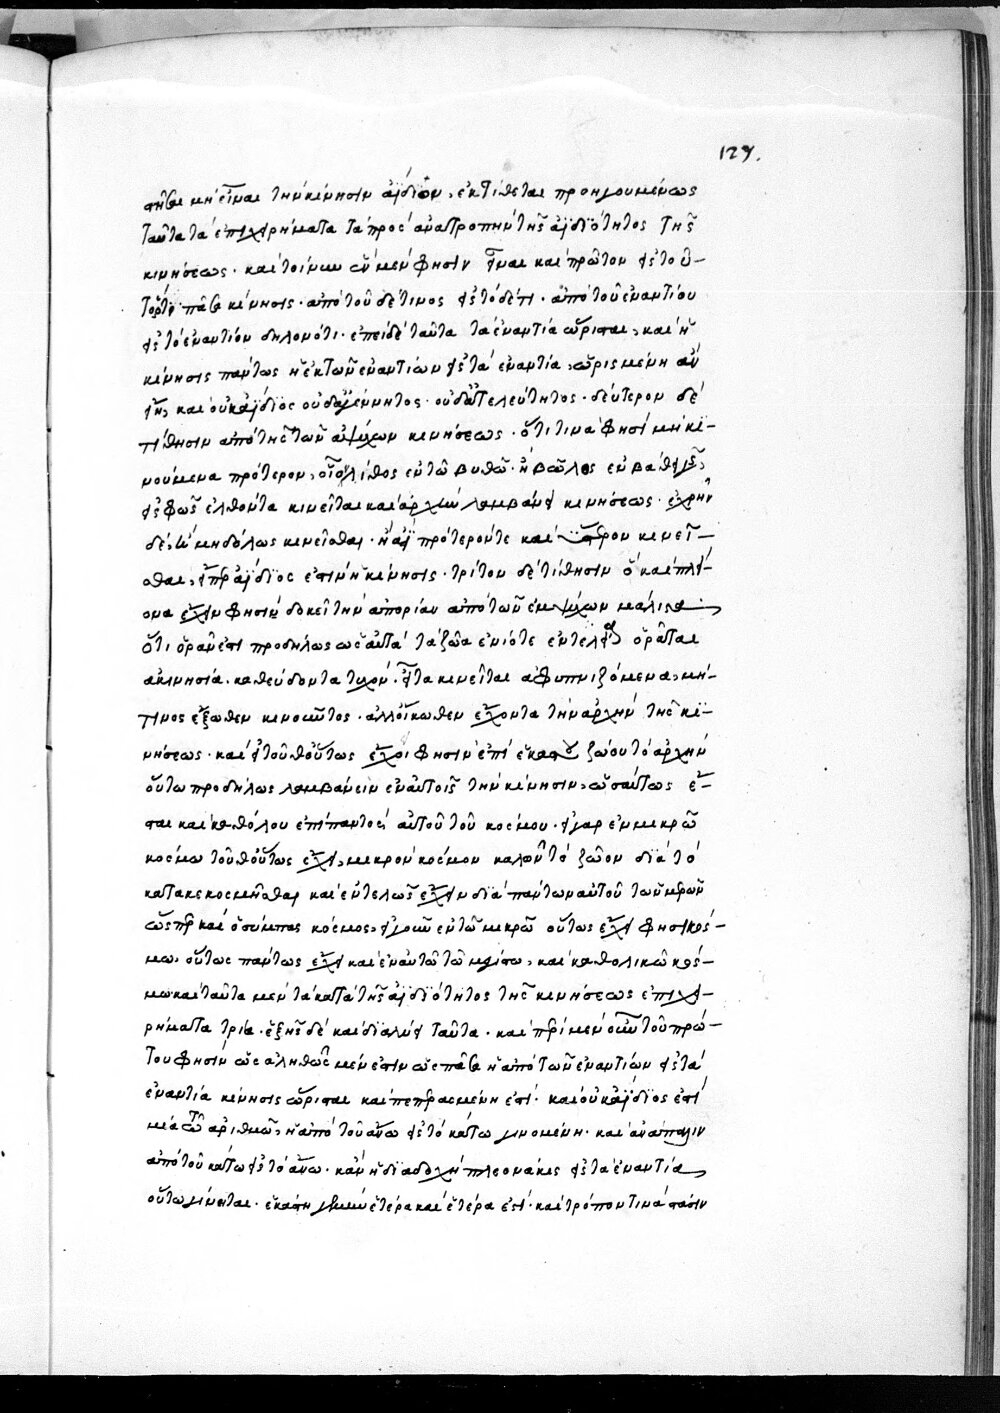 127.
μὴ εἶναι τὴν κίνησιν ἀΐδιον, ἐκτίθεται προηγουμένως
ταῦτα τὰ ἐπιχειρήματα τὰ πρὸς ἀνατροπὴν τῆς ἀϊδιότητος τῆς
κινήσεως. καὶ τοίνυν μέν φησιν εἶναι καὶ πρῶτον
πᾶσα κίνησις. ἀπὸ τοῦ δέ τινος εἰς τόδε τι. ἀπὸ τοῦ ἐναντίου
εἰς τὸ ἐναντίον δηλονότι. ἐπεὶ δὲ ταῦτα τὰ ἐναντία ὥρισται, καὶ ἡ
κίνησις πάντως ἡ ἐκ τῶν ἐναντίων εἰς τὰ ἐναντία, ὡρισμένη ἂν
εἴη, καὶ οὐκ ἀΐδιος οὐδ' ἀγέννητος. οὐδ' ἀτελεύτητος. δεύτερον δὲ
τίθησιν ἀπὸ τῆς τῶν ἀψύχων κινήσεως. ὅτι τινὰ φησὶ μὴ κι-
νούμενα πρότερον, οἷον λίθος ἐν τῷ βυθῷ. ἢ βῶλος ἐν βαθεῖ γῆς,
εἰς φῶς ἐλθόντα κινεῖται καὶ ἀρχὴν λαμβάνει κινήσεως. ἐχρῆν
δὲ, ἢ μηδόλως κινεῖσθαι. ἢ ἀεὶ πρότερόν τε καὶ ὕστερον κινεῖ-
σθαι, εἴπερ ἀΐδιός ἐστιν ἡ κίνησις. τρίτον δὲ τίθησιν ὃ καὶ πλεί-
ονα ἔχειν φησὶν δοκεῖ τὴν ἀπορίαν ἀπὸ τῶν ἐμψύχων μάλιστα
ὅτι ὁρᾶν ἔστι προδήλως ὡς αὐτὰ τὰ ζῷα ἐνίοτε ἐντελεῖ ὁρᾶται
ἀκινησίᾳ. καθεύδοντα τυχόν. εἶτα κινεῖται ἀφυπνιζόμενα, μή
τινος ἔξωθεν κινοῦντος. ἀλλ' οἴκοθεν ἔχοντα τὴν ἀρχὴν τῆς κι-
νήσεως. καὶ εἰ τοῦθ' οὕτως ἔχοι φησὶν ἐπὶ ἑκάστου ζῴου τὸ ἀρχὴν
οὕτω προδήλως λαμβάνειν ἐν αὐτοῖς τὴν κίνησιν, ὡσαύτως ἔ-
σται καὶ καθόλου ἐπὶ παντὸς αὐτοῦ τοῦ κόσμου. εἰ γὰρ ἐν μικρῷ
κόσμῳ τοῦθ' οὕτως ἔχει, μικρὸν κόσμον καλοῦντο ζῷον διὰ τὸ
κατακεκοσμῆσθαι καὶ ἐντελῶς ἔχειν διὰ πάντων αὑτοῦ τῶν μερῶν
ὥσπερ καὶ ὁ σύμπας κόσμος, εἰ γοῦν ἐν τῷ μικρῷ οὕτως ἔχει φησὶ κόσ-
μῳ. οὕτως πάντως ἔχει καὶ ἐν αὐτῷ τῷ μεγίστῳ, καὶ καθολικῷ κόσ-
μῳ καὶ ταῦτα μὲν τὰ κατὰ τῆς ἀϊδιότητος τῆς κινήσεως ἐπιχει-
ρήματα τρία. ἑξῆς δὲ καὶ διαλύει ταῦτα. καὶ περὶ μὲν οὖν τοῦ πρώ-
του φησὶν ὡς ἀληθῶς μέν ἐστιν ὡς πᾶσα ἡ ἀπὸ τῶν ἐναντίων εἰς τὰ
ἐναντία κίνησις ὥρισται καὶ πεπερασμένη ἐστί. καὶ οὐκ ἀΐδιός ἐστι
μία τῷ ἀριθμῷ, ἡ ἀπὸ τοῦ ἄνω εἰς τὸ κάτω γινομένη. καὶ ἀνάπαλιν
ἀπὸ τοῦ κάτω εἰς τὸ ἄνω. κἂν ἡ διαδοχὴ πλεονάκις εἰς τὰ ἐναντία
οὕτω γίνηται. ἑκάστη ἑτέρα καὶ ἑτέρα ἐστί. καὶ τρόπον τινὰ στάσιν